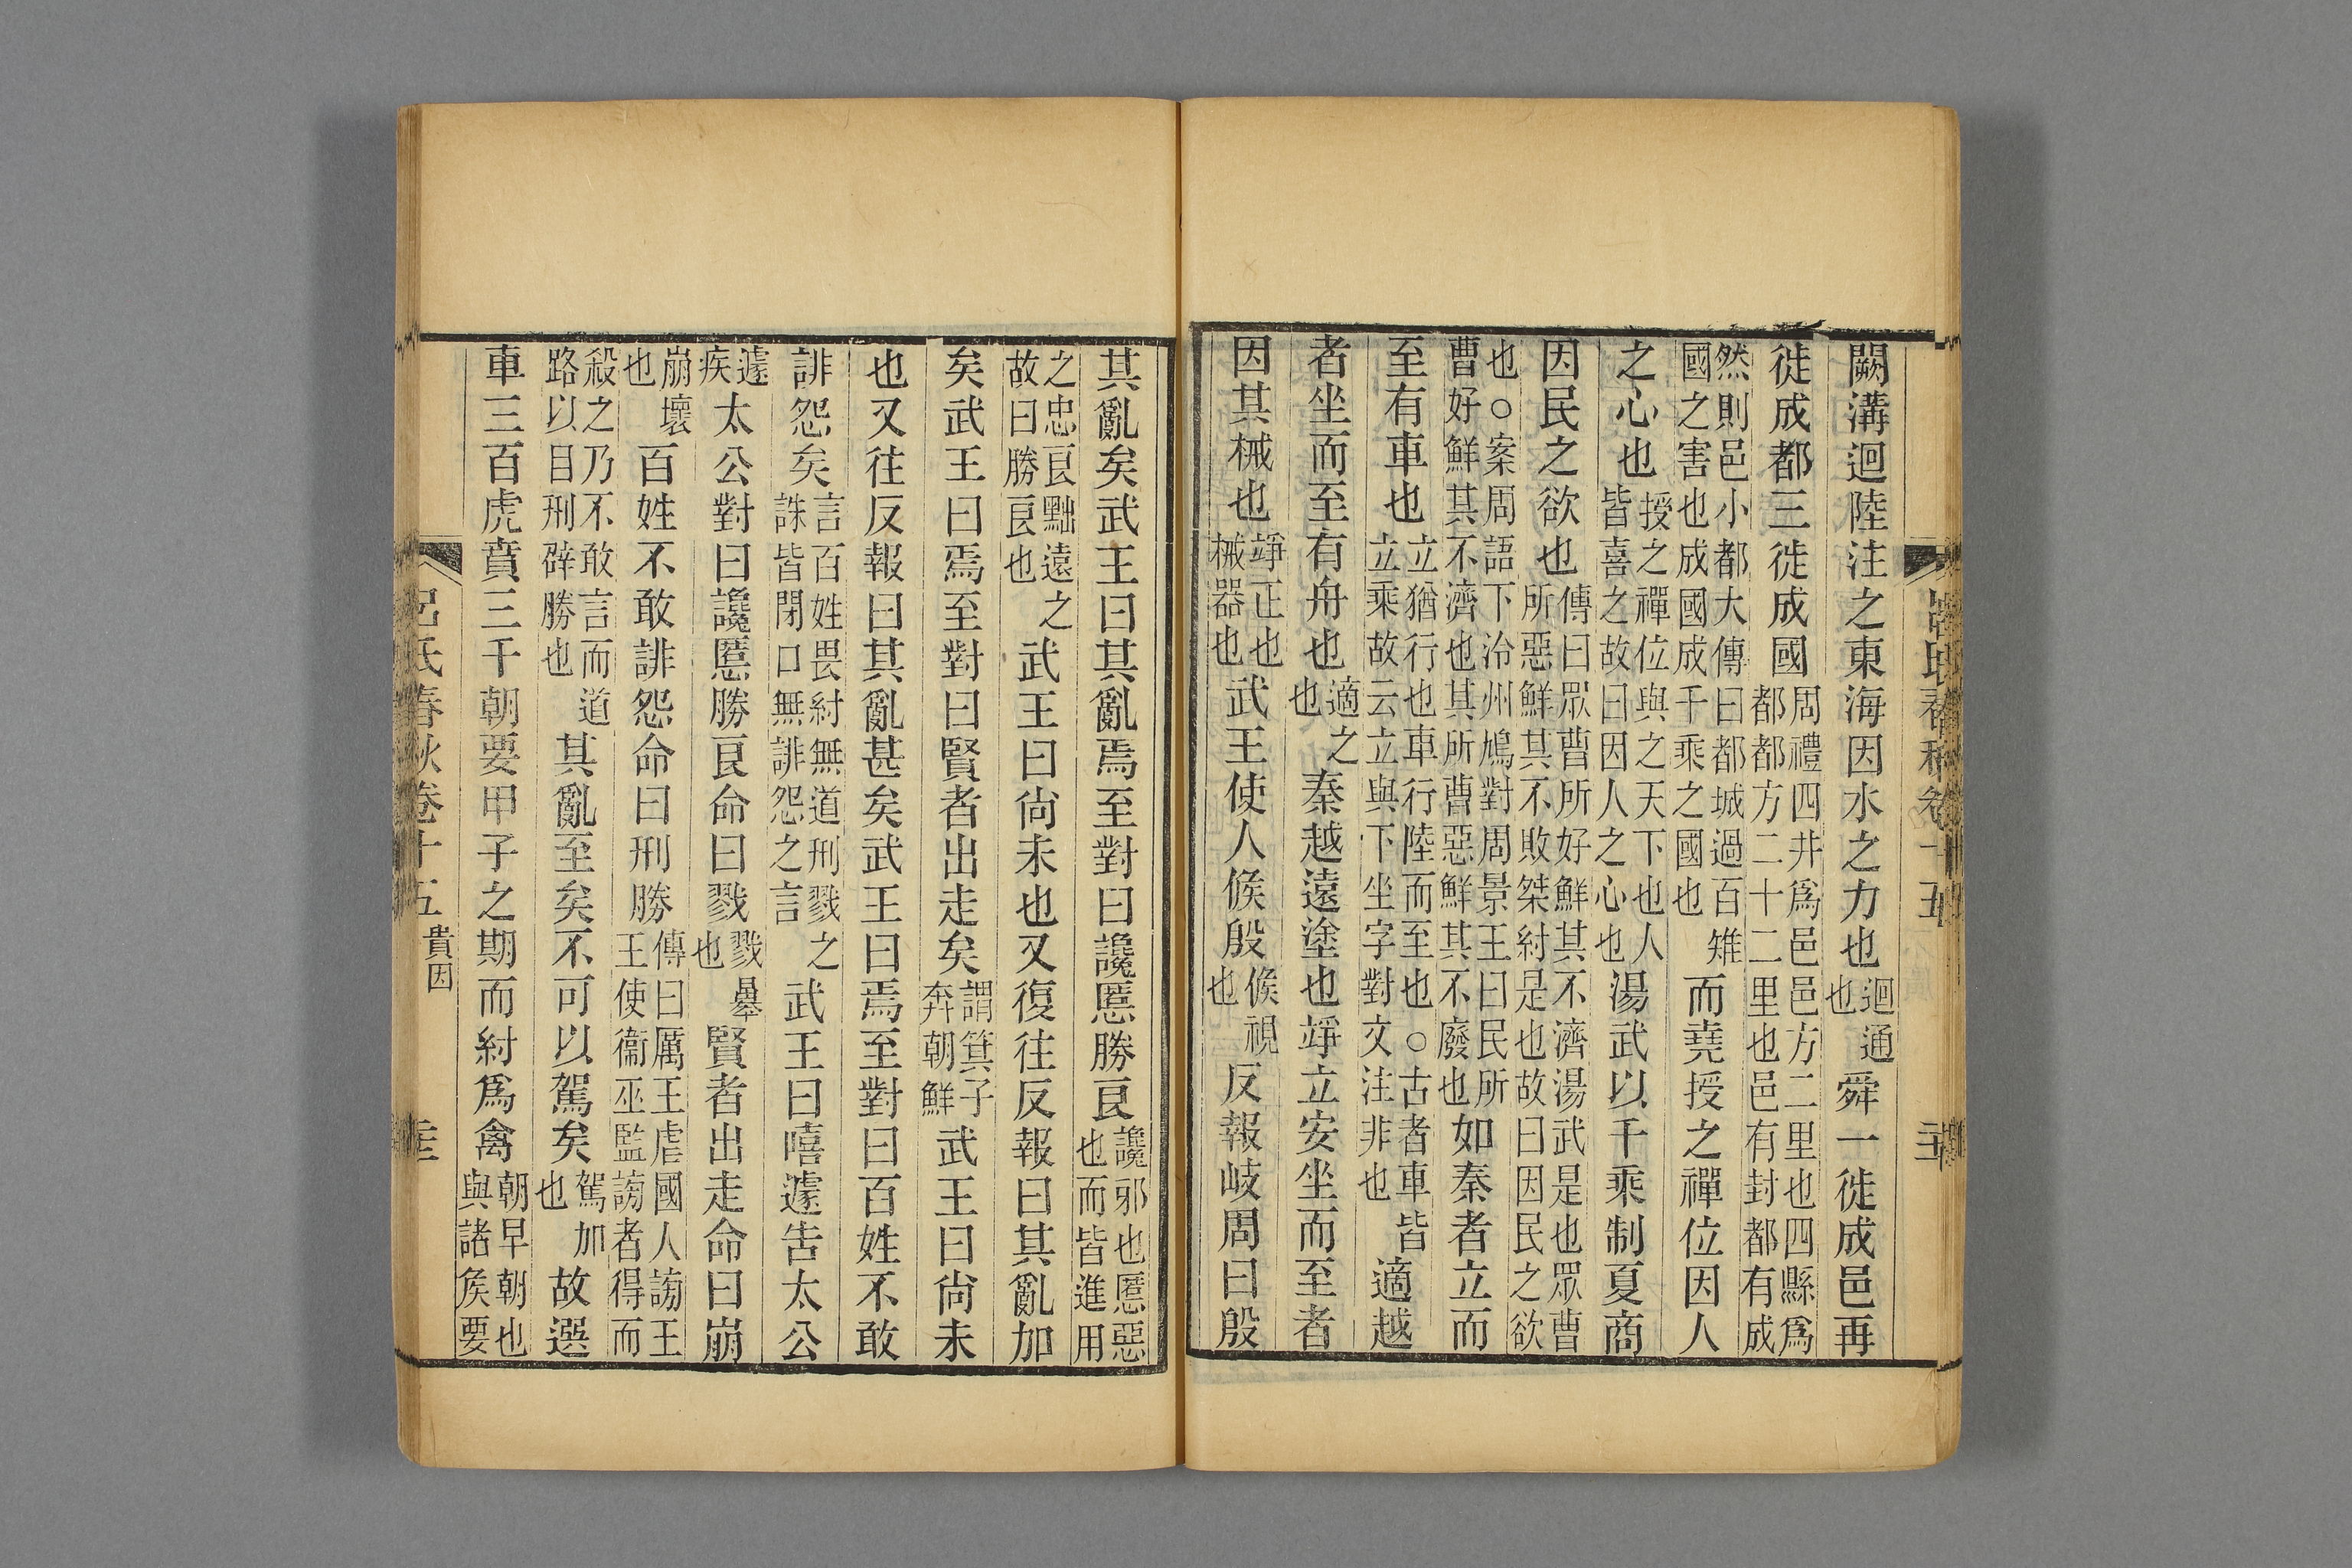 闕溝迴陸注之東海因水之力也迴通也舜一徙成邑再
徙成都三徙成國周禮四井爲邑邑方二里也四縣爲都都方二十二里也邑有封都有成
然則邑小都大傳曰都城過百雉國之害也成國成千乘之國也而堯授之禪位因人
之心也授之禪位與之天下也人皆喜之故曰因人之心也湯武以千乘制夏商
因民之欲也傳曰眾曹所好鮮其不濟湯武是也眾曹所惡鮮其不敗桀紂是也故曰因民之欲
也○案周語下泠州鳩對周景王曰民所曹好鮮其不濟也其所曹惡鮮其不廢也如秦者立而
至有車也立猶行也車行陸而至也○古者車皆立乘故云立與下坐字對文注非也適越
者坐而至有舟也適之也秦越遠塗也竫立安坐而至者
因其械也竫正也械器也武王使人候殷候視也反報岐周曰殷
呂氏春秋卷十五
其亂矣武王曰其亂焉至對曰讒慝勝良讒邪也慝惡也而皆進用
之忠良黜遠之故曰勝良也武王曰尙未也又復往反報曰其亂加
矣武王曰焉至對曰賢者出走矣謂箕子奔朝鮮武王曰尙未
也又往反報曰其亂甚矣武王曰焉至對曰百姓不敢
誹怨矣言百姓畏紂無道刑戮之誅皆閉口無誹怨之言武王曰嘻遽告太公
遽疾太公對曰讒慝勝良命曰戮戮暴也賢者出走命曰崩
崩壞也百姓不敢誹怨命曰刑勝傳曰厲王虐國人謗王王使衞巫監謗者得而
殺之乃不敢言而道路以目刑辟勝也其亂至矣不可以駕矣駕加也故選
車三百虎賁三千朝要甲子之期而紂爲禽朝早朝也與諸矦要
呂氏春秋卷十五 貴因